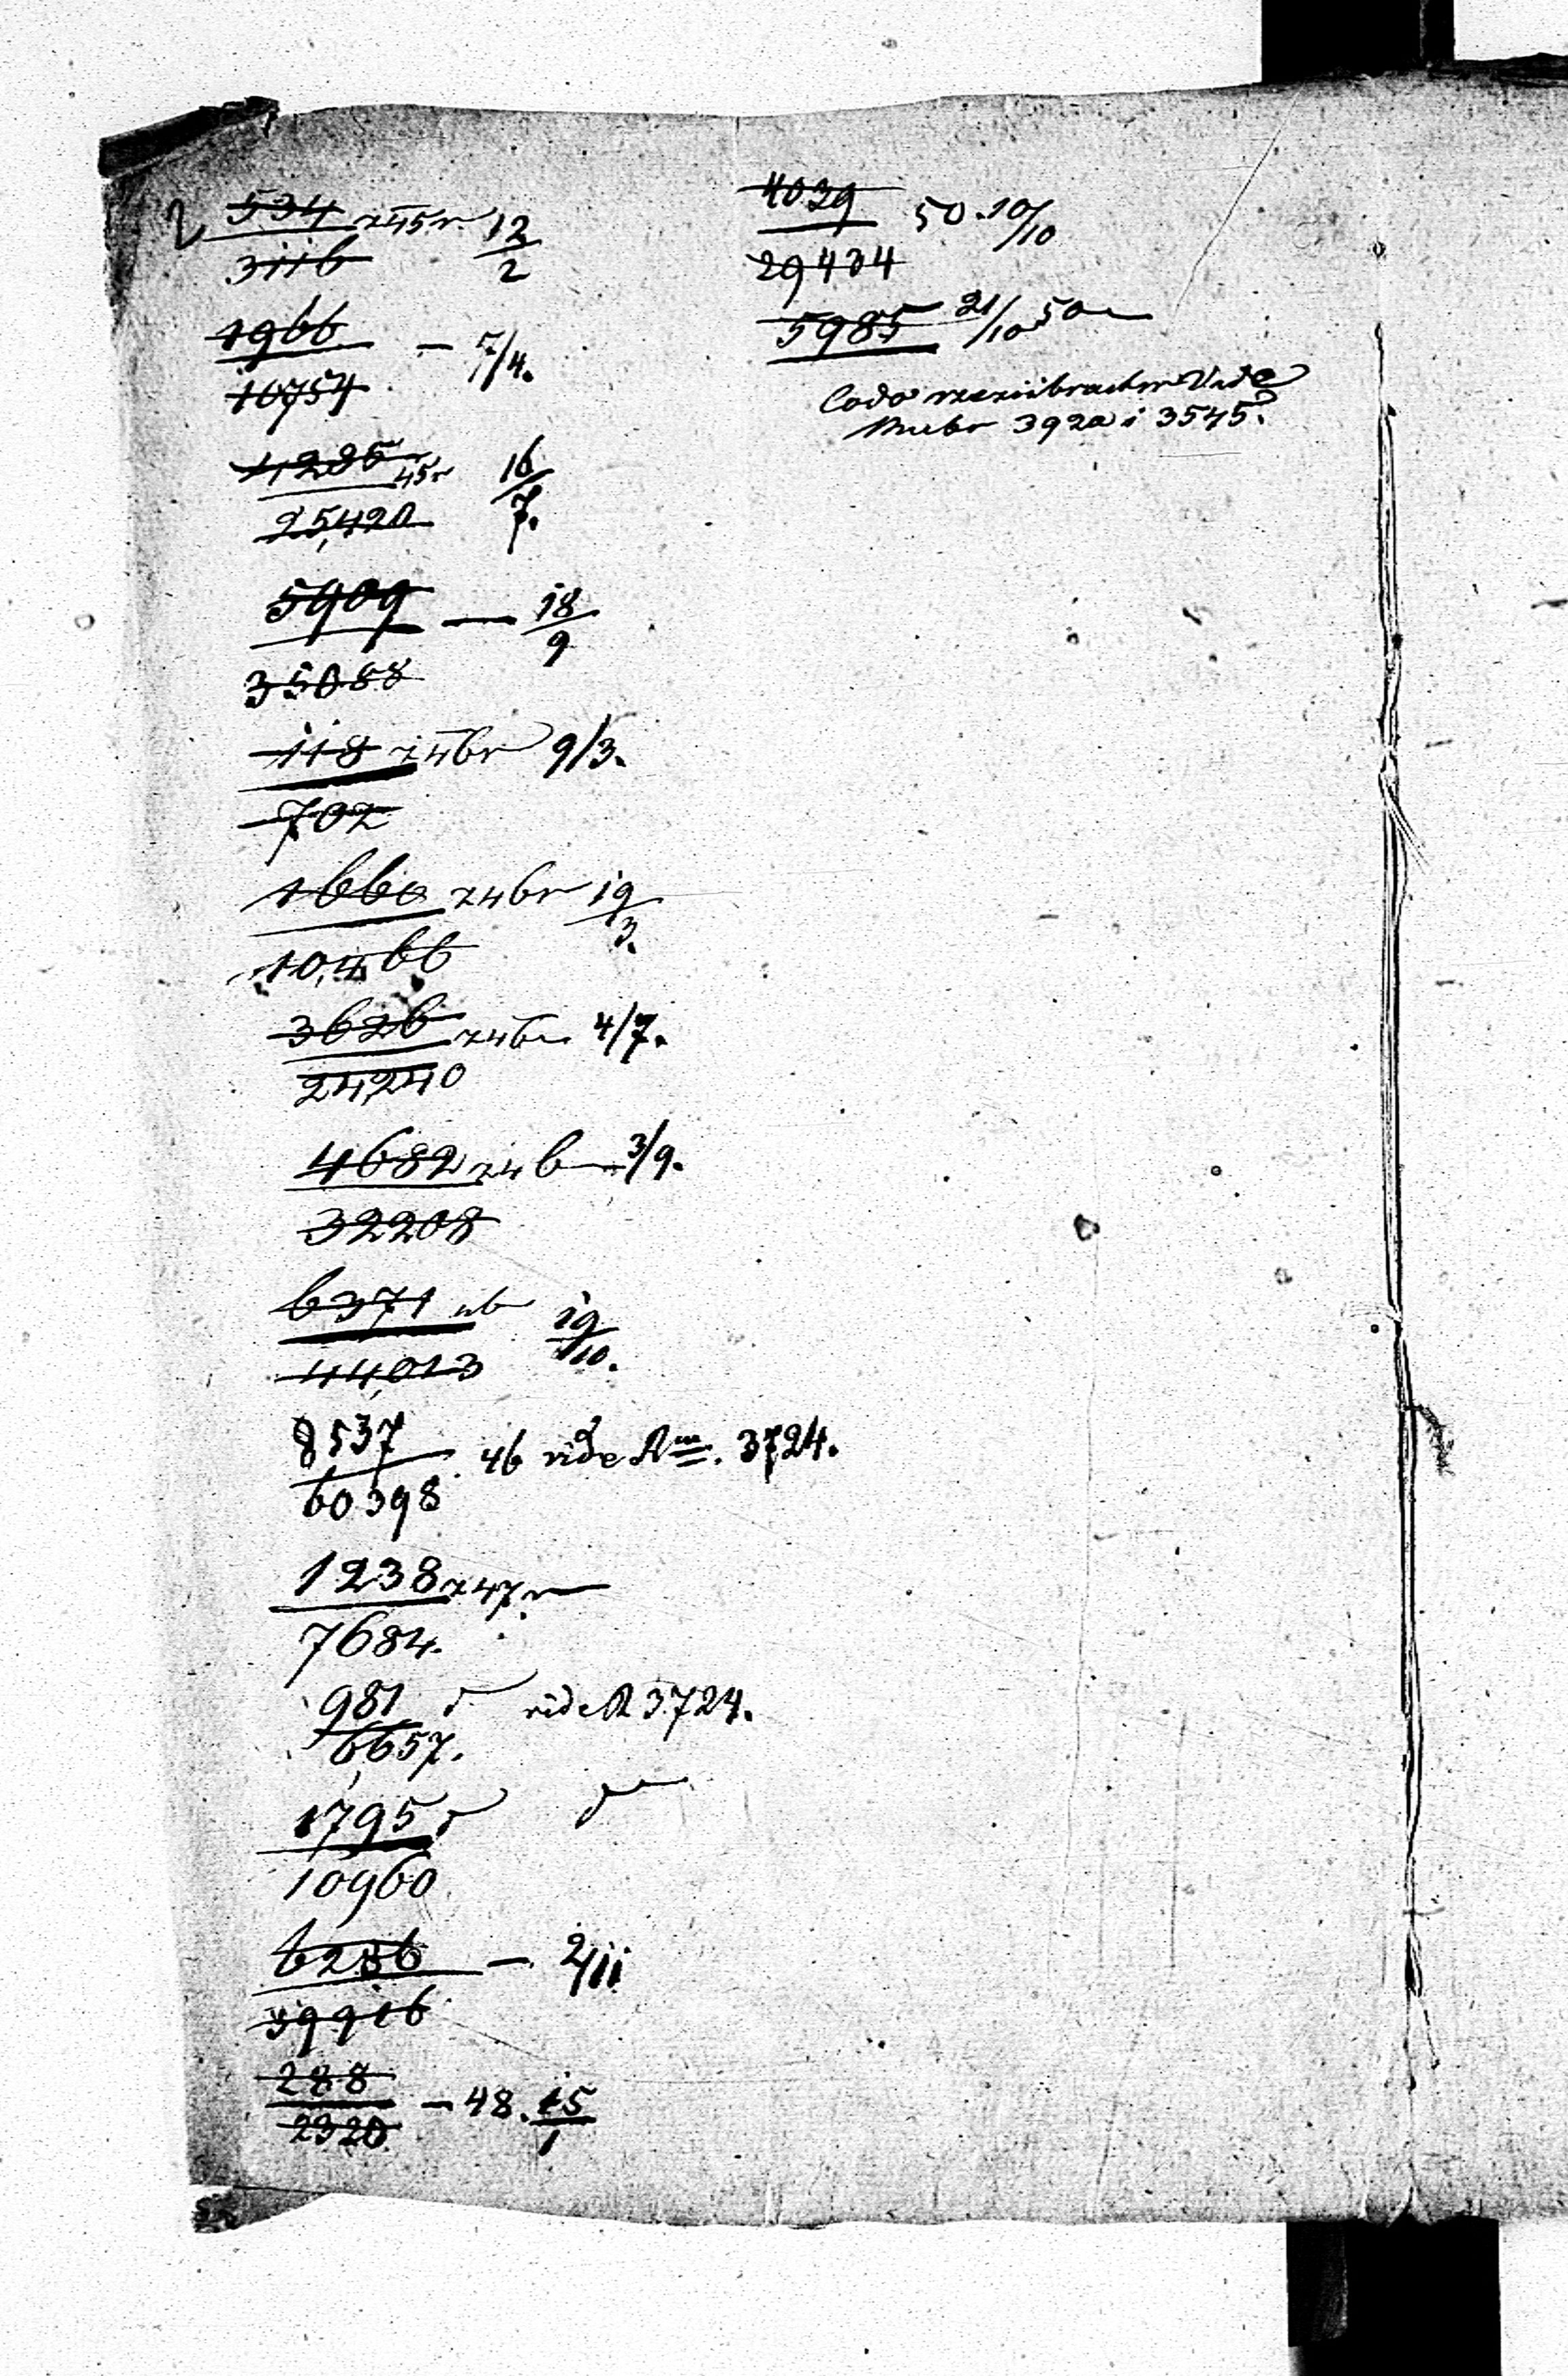 534 z 45r 12/2
3116
1966 — 7/4.
10754
4285 45r 16/7.
25,420
5909 — 18/9
35088
118 z 46r 9/3.
702
1660 z 46r 19/3.
10,466
3626 z 46r 4/7.
24,240
4682 z 46 — 3/9.
32208
6371 19/10.
44,013
8537 46 vide R 3724.
60398
1238 z 47r
7684.
981 vide R 3724.
6,657.
1795
10960
6236 — 2/11
39916
288 — 48. 15/1
2320
4039 50. 10/10
29434
5985 21/10 50
3920 i 3545.